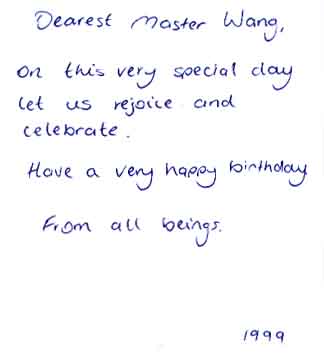 Dearest Master Wang,
On this very special day
let us rejoice and
celebrate.
Have a very happy birthday
From all beings.
1999